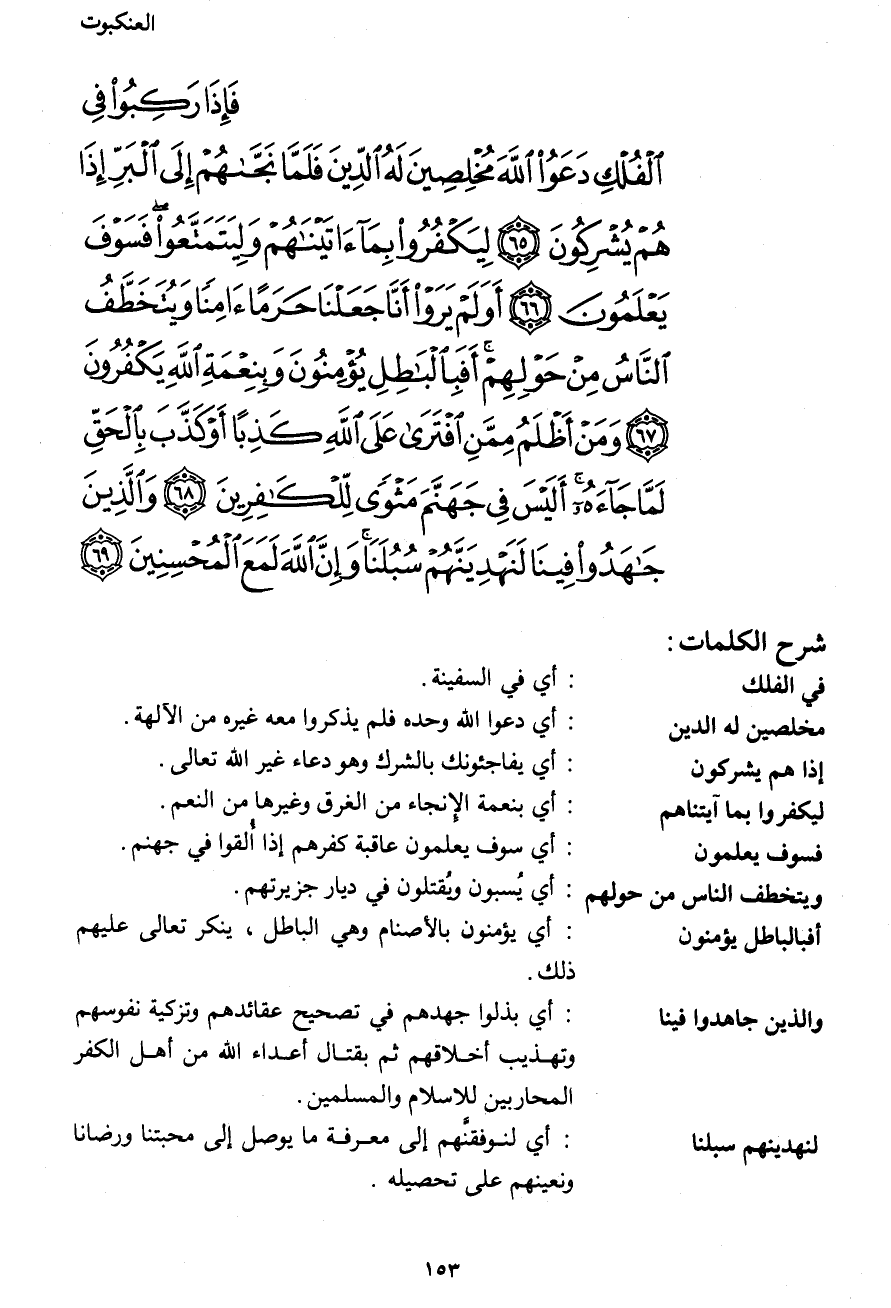 العنكبوت
فَإِذَا رَكِبُواْ فِي
ٱلْفُلْكِ دَعَوُاْ ٱللَّهَ مُخْلِصِينَ لَهُ ٱلدِّينَ فَلَمَّا نَجَّىٰهُمْ إِلَى ٱلْبَرِّ إِذَا
هُمْ يُشْرِكُونَ ﴿٦٥﴾ لِيَكْفُرُواْ بِمَآ ءَاتَيْنَٰهُمْ وَلِيَتَمَتَّعُواْۖ فَسَوْفَ
يَعْلَمُونَ ﴿٦٦﴾ أَوَلَمْ يَرَوْاْ أَنَّا جَعَلْنَا حَرَمًا ءَامِنًا وَيُتَخَطَّفُ
ٱلنَّاسُ مِنْ حَوْلِهِمْۚ أَفَبِٱلْبَٰطِلِ يُؤْمِنُونَ وَبِنِعْمَةِ ٱللَّهِ يَكْفُرُونَ
﴿٦٧﴾ وَمَنْ أَظْلَمُ مِمَّنِ ٱفْتَرَىٰ عَلَى ٱللَّهِ كَذِبًا أَوْ كَذَّبَ بِٱلْحَقِّ
لَمَّا جَآءَهُۥٓۚ أَلَيْسَ فِي جَهَنَّمَ مَثْوًى لِّلْكَٰفِرِينَ ﴿٦٨﴾ وَٱلَّذِينَ
جَٰهَدُواْ فِينَا لَنَهْدِيَنَّهُمْ سُبُلَنَاۚ وَإِنَّ ٱللَّهَ لَمَعَ ٱلْمُحْسِنِينَ ﴿٦٩﴾
شرح الكلمات :
في الفلك : أي في السفينة .
مخلصين له الدين : أي دعوا الله وحده فلم يذكروا معه غيره من الآلهة .
إذا هم يشركون : أي يفاجئونك بالشرك وهو دعاء غير الله تعالى .
ليكفروا بما آيتناهم : أي بنعمة الإنجاء من الغرق وغيرها من النعم .
فسوف يعلمون : أي سوف يعلمون عاقبة كفرهم إذا أُلقوا في جهنم .
ويتخطف الناس من حولهم : أي يُسبون ويُقتلون في ديار جزيرتهم .
أفبالباطل يؤمنون : أي يؤمنون بالأصنام وهي الباطل ، ينكر تعالى عليهم
ذلك .
والذين جاهدوا فينا : أي بذلوا جهدهم في تصحيح عقائدهم وتزكية نفوسهم
وتهذيب أخلاقهم ثم بقتال أعداء الله من أهل الكفر
المحاربين للاسلام والمسلمين .
لنهدينهم سبلنا : أي لنوفقنَّهم إلى معرفة ما يوصل إلى محبتنا ورضانا
ونعينهم على تحصيله .
١٥٣